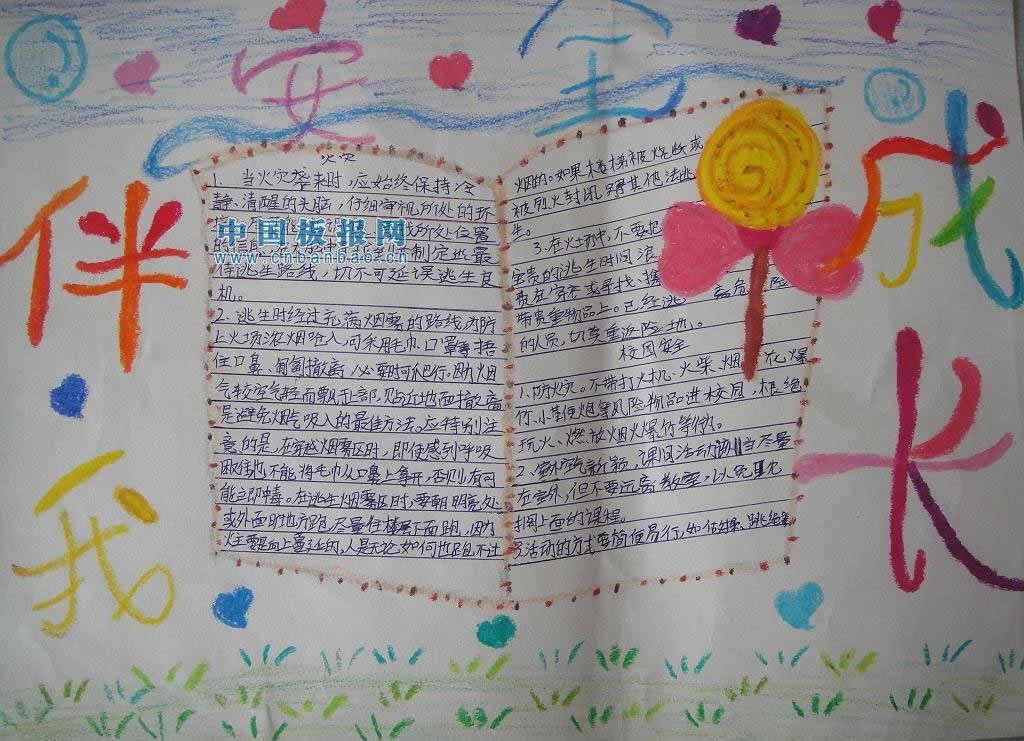 安全
伴我
成长
火灾
1、当火灾袭来时,应始终保持冷
静、清醒的头脑,仔细审视所处的环
中国板报网
www.cnbanbao.cn
待逃生路线,切不可延误逃生良
机。
2、逃生时经过充满烟雾的路线,为防
止火场浓烟吸入,可采用毛巾、口罩等捂
住口鼻、匍匐撤离,必要时可爬行。因为烟
气较空气轻而飘于上部,贴近地面撤离
是避免烟气吸入的最佳方法。应特别注
意的是,在穿越烟雾区时,即使感到呼吸
困难也不能将毛巾从口鼻上拿开,否则有可
能立即中毒。在逃生烟雾区时,要朝明亮处
或外面的地方跑,尽量往楼下面跑,因为
火主要是向上蔓延的,人是无论如何也跑不过
烟的。如果楼梯被烧断或
被烈火封闭,
生。
3、在火场中,不要把
宝贵的逃生时间浪
费在穿衣或寻找、携
带贵重物品上。已经逃 离危险
的人员,切莫重返险地。
校园安全
1、防火灾。不带打火机、火柴、烟花爆
竹、小 等风险物品进校园,杜绝
玩火、燃放烟火爆竹等
2、室外空气新颖,课间活动 当尽量
在室外,但不要远离教室,以免
接上面的课程。
活动的方式要简便易行,如做操、跳绳等